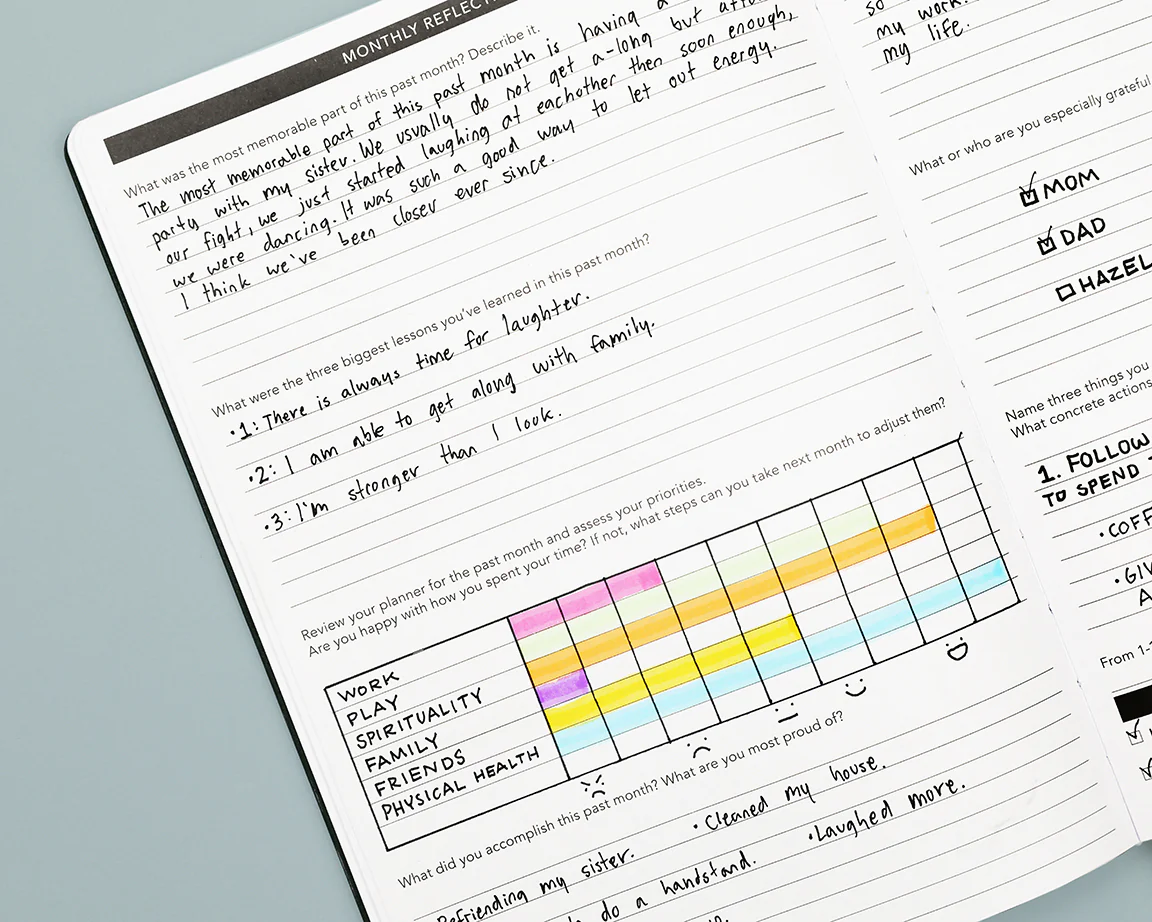 MONTHLY REFLECT
What was the most memorable part of this past month? Describe it.
The most memorable part of this past month is having a
party with my sister. We usually do not get a-long but
our fight, we just started laughing at eachother then soon enough,
we were dancing. It was such a good way to let out energy.
I think we've been closer ever since.
What were the three biggest lessons you've learned in this past month?
•1: There is always time for laughter.
•2: I am able to get along with family.
•3: I'm stronger than I look.
Review your planner for the past month and assess your priorities.
Are you happy with how you spent your time? If not, what steps can you take next month to adjust them?
WORK
PLAY
SPIRITUALITY
FAMILY
FRIENDS
PHYSICAL HEALTH
What did you accomplish this past month? What are you most proud of?
Refriending my sister.
• Cleaned my house.
do a handstand.
• Laughed more.
so
my work.
my life.
What or who are you especially grateful
MOM
DAD
HAZEL
Name three things you
What concrete actions
1. FOLLOW
TO SPEND
• COFF
• GIV
A
From 1-